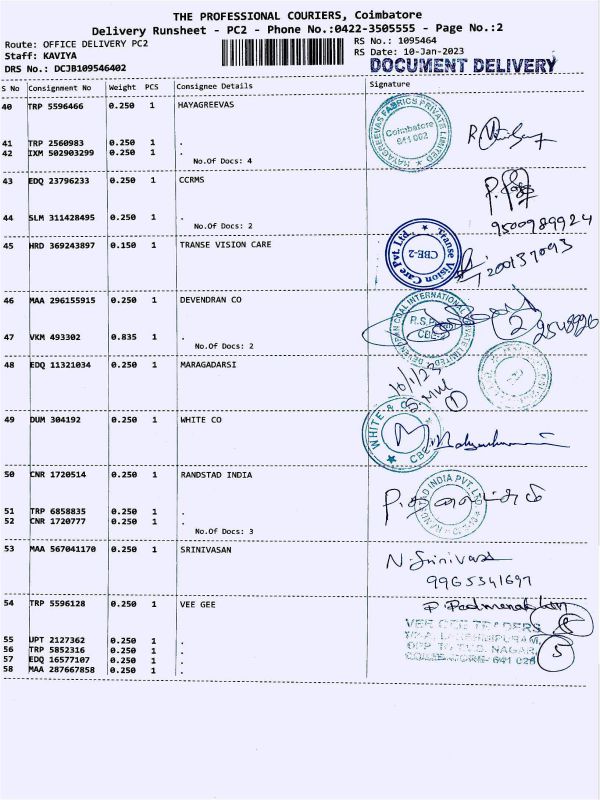 THE PROFESSIONAL COURIERS, Coimbatore
Delivery Runsheet - PC2 - Phone No.:0422-3505555 - Page No.:2
Route: OFFICE DELIVERY PC2 RS No.: 1095464
Staff: KAVIYA RS Date: 10-Jan-2023
DRS No.: DCJB109546402 DOCUMENT DELIVERY
S No Consignment No Weight PCS Consignee Details Signature
40 TRP 5596466 0.250 1 HAYAGREEVAS
HAYAGREEVAS FABRICS PRIVATE LIMITED Coimbatore 641 002
41 TRP 2560983 0.250 1 .
42 IXM 502903299 0.150 1 .
No.Of Docs: 4
43 EDQ 23796233 0.250 1 CCRMS
44 SLM 311428495 0.250 1 .
No.Of Docs: 2
9500989924
45 HRD 369243897 0.150 1 TRANSE VISION CARE
Transe Vision Care Pvt. Ltd. CBE-2
46 MAA 296155915 0.250 1 DEVENDRAN CO
DEVENDRAN COAL INTERNATIONAL PRIVATE LIMITED
2
47 VKM 493302 0.835 1 .
No.Of Docs: 2
48 EDQ 11321034 0.250 1 MARAGADARSI
10/1/23
1
49 DUM 304192 0.250 1 WHITE CO
WHITE & CO CBE
50 CNR 1720514 0.250 1 RANDSTAD INDIA
RANDSTAD INDIA PVT. LTD
51 TRP 6858835 0.250 1 .
52 CNR 1720777 0.250 1 .
No.Of Docs: 3
53 MAA 567041170 0.250 1 SRINIVASAN
N. Srinivasa
9965341697
54 TRP 5596128 0.250 1 VEE GEE
VEE GEE TRADERS
55 UPT 2127362 0.250 1 .
56 TRP 5852316 0.250 1 .
57 EDQ 16577107 0.250 1 .
58 MAA 287667858 0.250 1 .
5